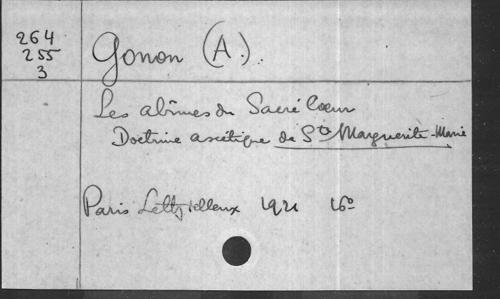 264
255
3
Gonon (A.).
Les abîmes du Sacré Coeur
Doctrine ascétique de Ste Marguerite-Marie
Paris Lethielleux 1921 16º